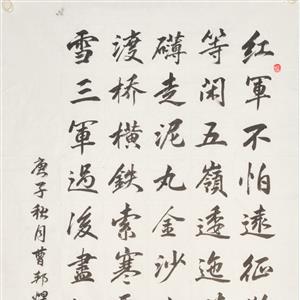 红軍不怕遠征
等闲五嶺逶迤
礴走泥丸金沙
渡桥橫鉄索寒
雪三軍過後盡
庚子秋月曹邦